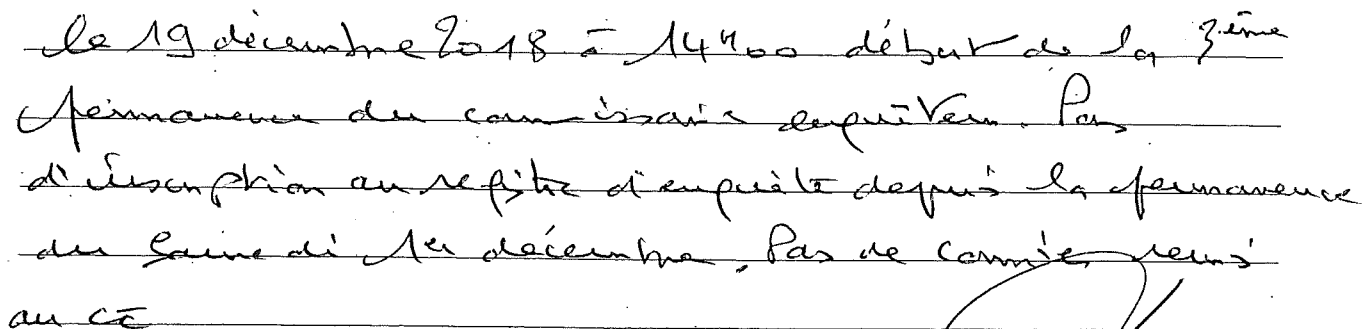 le 19 décembre 2018 à 14h00 début de la 3ème
permanence du commissaire enquêteur. Pas
d'inscription au registre d'enquête depuis la permanence
du Samedi 1er décembre. Pas de courrier remis
au CE